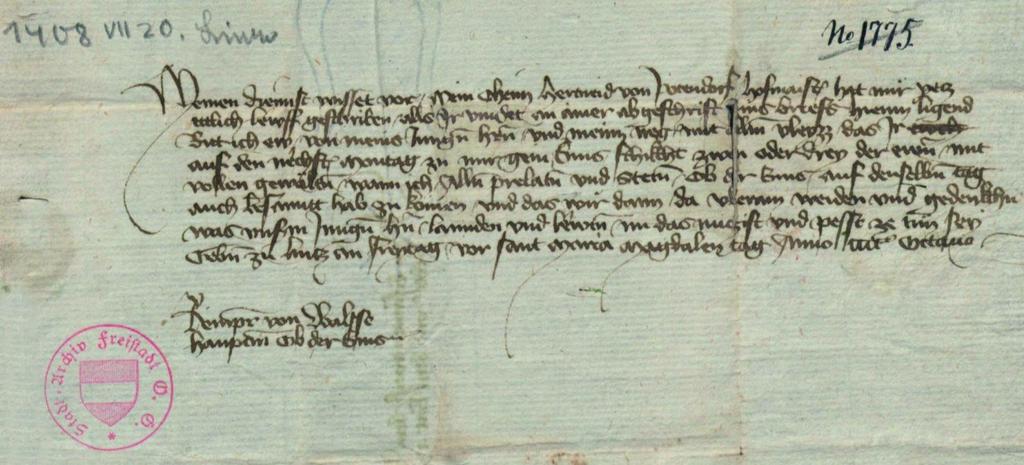 1408 VII 20. Linz
No 1775.
Meinen dienst wisset vor Mein Ohem Hertneid von hat mir yetz
ettlich lewff geschriben alls Jr vindet an ainer abgeschrift ains briefs hierinn ligend
Bitt ich ew von meins Jungen hern und meinen weg mit allem vleizz das Jr
auf den nechsten Montag zu mir gein Enns schikkhet zwen oder drey der ewrn mit
vollem gewalt wann ich Allen prelaten und Steten Ob der Enns auf denselben tag
auch besannt hab zu komen und das wir dann da uberain werden und gedenkhen
was unserm Jungen hern lannden und lewten nu das nutzist und pesst ze tun sey
Geben zu lintz am freitag vor sant Maria Magdalen tag Anno etc Octavo
Reimpr von Waltsse
haupttman Ob der Enns
Stadt-Archiv Freistadt O. Ö.